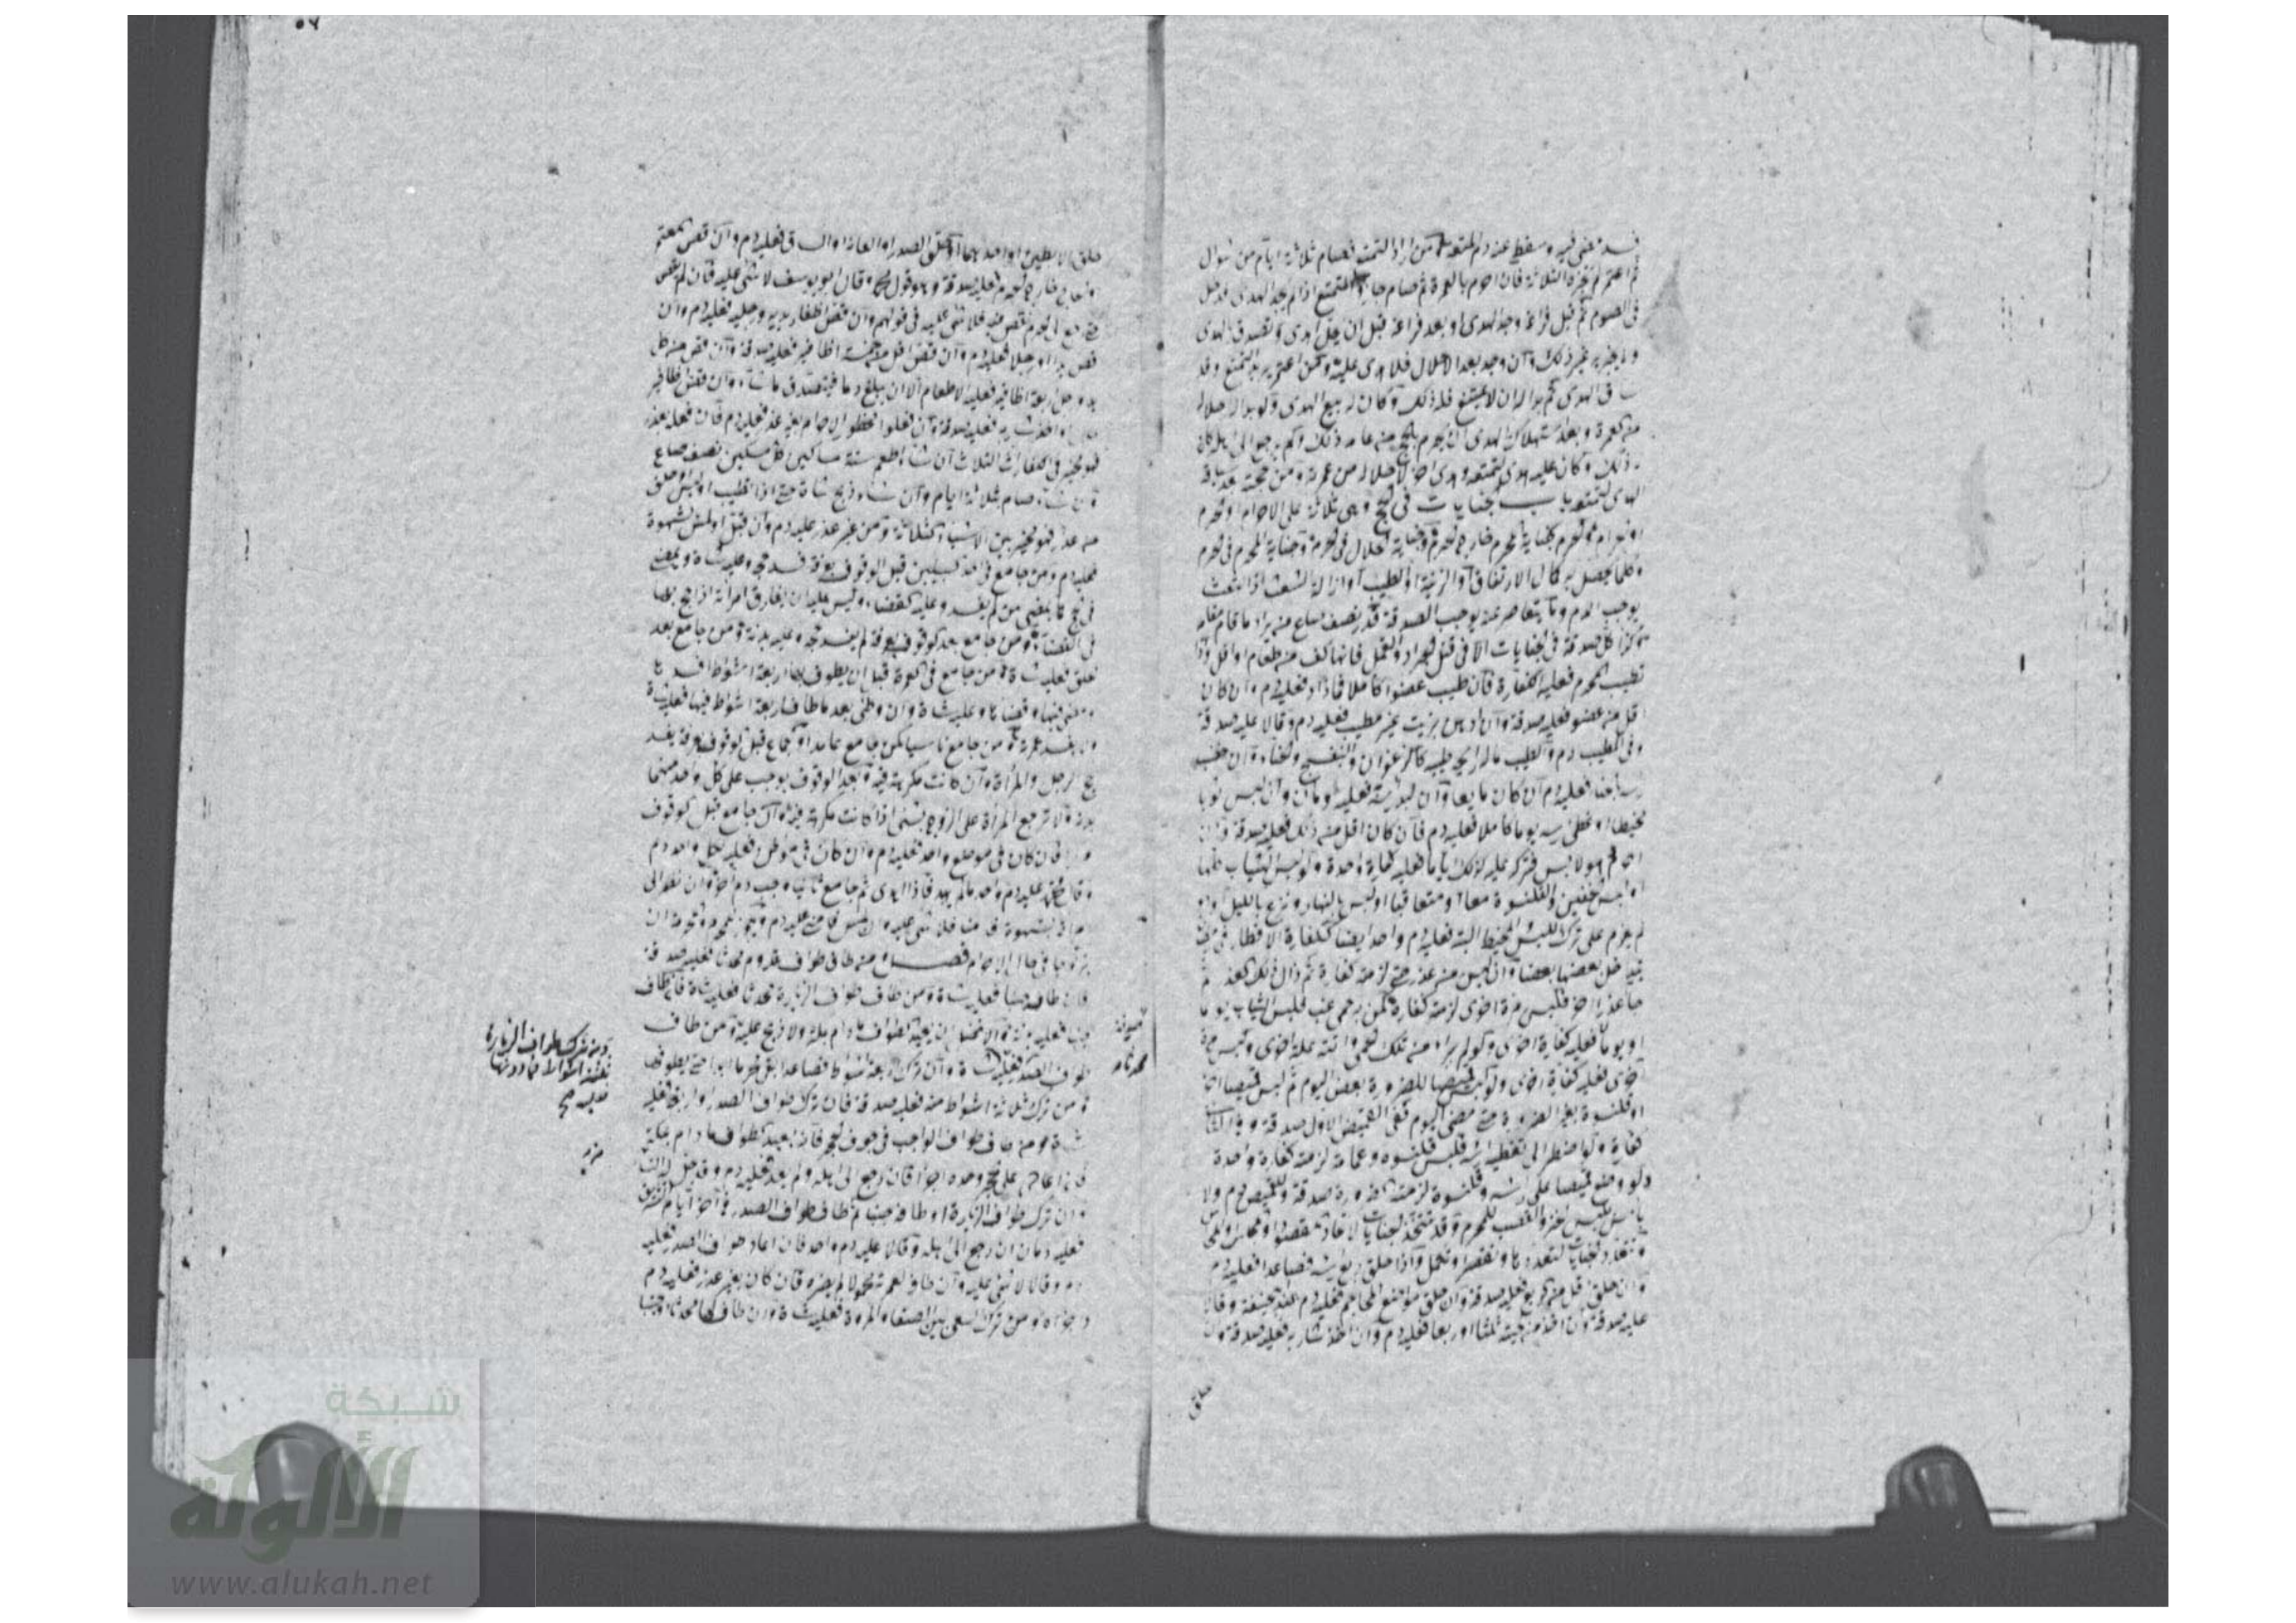 فسد مضى فيه وسقط عنه دم المتعة من أراد التمتع فصام ثلاثة أيام من شوال
ثم اعتمر لم يجزه الثلاثة فإن أحرم بالعمرة ثم صام جاز المتمتع إذا لم يجد الهدي فدخل
في الصوم ثم قبل فراغه وجد الهدي أو بعد فراغه قبل أن يحل
ولا يجزيه غير ذلك وإن وجد بعد الإحلال فلا هدي عليه ومن اعتمر يريد التمتع وقد
ساق الهدي ثم بدا له أن لا يتمتع فله ذلك وكان له بيع الهدي
من عمرته وبعد استهلاك الهدي أن يحرم بالحج من عامه ذلك ولم يرجع إلى أهله كان
ذلك وكان عليه هدي لتمتعه وهدي آخر لإحلاله من عمرته ومن حجته بعد سياقه
الهدي لتمتعه باب الجنايات في الحج وهي ثلاثة على الإحرام أو الحرم
وكلما يحصل به كمال الارتفاق أو الزينة أو الطيب أو إزالة الشعث
يوجب الدم وما يتقاصر عنه يوجب الصدقة قدر نصف صاع من بر أو ما قام مقامه
كذا كل صدقة في الجنايات إلا في قتل الجراد والقمل فإنها كف من طعام أو أقل وإذا
تطيب المحرم فعليه الكفارة فإن طيب عضوا كاملا فما زاد فعليه دم وإن كان
أقل من عضو فعليه صدقة وإن ادهن بزيت غير مطيب فعليه دم وقالا عليه صدقة
وفي المطيب دم والطيب ما له رائحة طيبة كالزعفران والبنفسج والحناء وإن خضب
رأسه بحناء فعليه دم إن كان مايعا وإن لبد رأسه فعليه دمان وإن لبس ثوبا
مخيطا أو غطى رأسه يوما كاملا فعليه دم فإن كان أقل من ذلك فعليه صدقة
أحرم وهو لابس فترك عليه كذلك أياما فعليه كفارة واحدة ولو لبس الثياب كلها
أو لبس الخفين والقلنسوة معا أو متعاقبا أو لبس بالنهار ونزع بالليل
لم يعزم على ترك اللبس المخيط البتة فعليه دم واحد أيضا ككفارة الإفطار
يدخل بعضها بعضا وإن لبس من عذر حتى لزمته كفارة ثم زال ذلك العذر ثم
جاء عذر آخر فلبس مرة أخرى لزمته كفارة كمن به حمى غب فلبس الثياب يوما
أو يوما فعليه كفارة أخرى ولو لم يبرأ من تلك الحمى وأتته علة أخرى
أخرى فعليه كفارة أخرى ولو لبس قميصا للضرورة بعض اليوم ثم لبس قميصا آخر
أو قلنسوة بغير الضرورة حتى مضى اليوم ففي القميص الأول صدقة وفي الثاني
كفارة ولو اضطر إلى تغطية رأسه فلبس قلنسوة وعمامة لزمته كفارة واحدة
ولو وضع قميصا على رأسه وقلنسوة لزمته للضرورة صدقة وللقميص دم ولا
بأس بلبس الخز والقصب للمحرم وقد تتحد الجنايات لاتحاد مقصدها
وتتعدد الجنايات لتعددها وإذا حلق ربع رأسه فصاعدا فعليه دم
وإن حلق أقل من الربع فعليه صدقة وإن حلق مواضع المحاجم فعليه دم عند أبي حنيفة وقالا
عليه صدقة وإن أخذ من لحيته ثلثا أو ربعا فعليه دم وإن أخذ شاربه فعليه صدقة وإن
حلق
٥٦
حلق الإبطين أو أحدهما أو حلق الصدر أو العانة أو الساق فعليه دم وإن قص المعتمر
والحاج خارج الحرم فعليه صدقة وهو قول محمد وقال أبو يوسف لا شيء عليه فإن لم يقص
حتى رجع إلى الحرم فقص فيه فلا شيء عليه في قولهم وإن قص أظفار يديه ورجليه فعليه دم وإن
قص يدا أو رجلا فعليه دم وإن قص أقل من خمسة أظافير فعليه صدقة وإن قص من كل
يد ورجل أربعة أظافير فعليه الإطعام إلا أن يبلغ دما فيتصدق ما شاء
أو أخذ شاربه فعليه صدقة وإن فعل محظور الإحرام بغير عذر فعليه دم فإن فعله بعذر
فهو مخير في الكفارات الثلاث إن شاء أطعم ستة مساكين كل مسكين نصف صاع
وإن شاء صام ثلاثة أيام وإن شاء ذبح شاة حتى إذا تطيب أو لبس أو حلق
من عذر فهو مخير بين الأشياء الثلاثة ومن غير عذر عليه دم وإن قبل أو لمس بشهوة
فعليه دم ومن جامع في أحد السبيلين قبل الوقوف بعرفة فسد حجه وعليه شاة ويمضي
في الحج كما يمضي من لم يفسد وعليه القضاء وليس عليه أن يفارق امرأته إذا حج بها
في القضاء ومن جامع بعد الوقوف بعرفة لم يفسد حجه وعليه بدنة ومن جامع بعد
الحلق فعليه شاة ومن جامع في العمرة قبل أن يطوف لها أربعة أشواط أفسدها
ومضى فيها وقضاها وعليه شاة وإن وطئ بعد ما طاف أربعة أشواط فيها فعليه شاة
ولا يفسد عمرته ومن جامع ناسيا كمن جامع عامدا والجماع قبل الوقوف بعرفة يفسد
حج الرجل والمرأة وإن كانت مكرهة فيه وبعد الوقوف يوجب على كل واحد منهما
بدنة ولا ترجع المرأة على الزوج بشيء إذا كانت مكرهة فيه وإن جامع قبل الوقوف
مرارا فإن كان في موضع واحد فعليه دم وإن كان في موطن فعليه لكل واحد دم
وقال محمد عليه دم واحد ما لم يهد فإذا أهدى ثم جامع ثانيا وجب دم آخر وإن نظر إلى
امرأة بشهوة فأمنى فلا شيء عليه وإن لمس فأمنى عليه دم ويجوز للمحرم والمحرمة أن
يتزوجا في حال الإحرام فصل من طاف طواف القدوم محدثا فعليه صدقة
فإن طاف جنبا فعليه شاة ومن طاف طواف الزيارة محدثا فعليه شاة فإن طاف
جنبا فعليه بدنة والأفضل أن يعيد الطواف ما دام بمكة ولا ذبح عليه ومن طاف
طواف الصدر فعليه شاة وإن ترك أربعة أشواط فصاعدا بقي محرما أبدا حتى يطوفها
ومن ترك ثلاثة أشواط منه فعليه صدقة فإن ترك طواف الصدر أو أربعا فعليه
شاة ومن طاف طواف الواجب في جوف الحجر فإنه يعيد الطواف ما دام بمكة
فإن أعاد على الحجر وحده أجزأه فإن رجع إلى أهله ولم يعد فعليه دم
وإن ترك طواف الزيارة أو طافه جنبا ثم طاف طواف الصدر في آخر أيام التشريق
فعليه دمان إن رجع إلى أهله وقالا عليه دم واحد فإن أعاد طواف الصدر فعليه
دم وقالا لا شيء عليه وإن طاف لعمرته محمولا لم يجزه فإن كان بغير عذر فعليه دم
وأجزأه ومن ترك السعي بين الصفا والمروة فعليه شاة وإن طاف
ومن ترك طواف الزيارة
ثلاثة أشواط فما دونها
شبكة
الألوكة
www.alukah.net